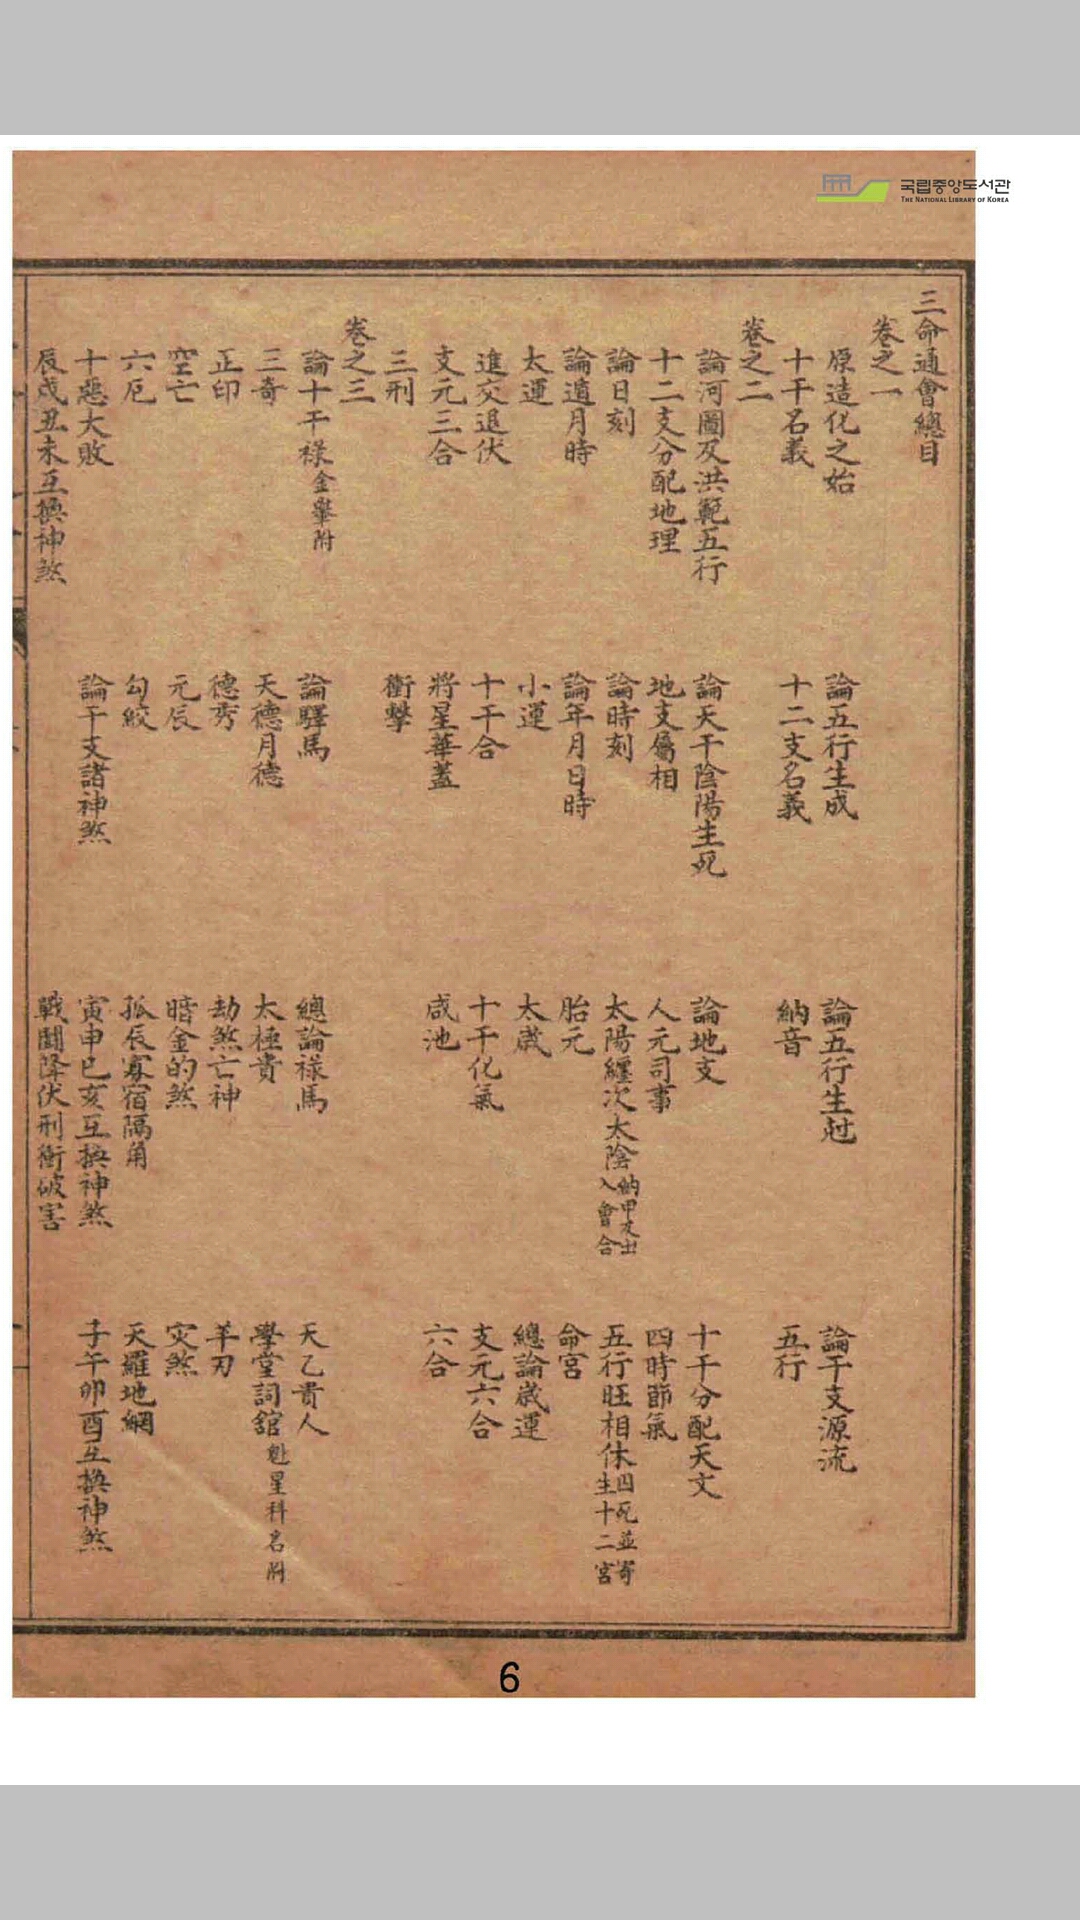 국립중앙도서관
THE NATIONAL LIBRARY OF KOREA
三命通會總目
卷之一
原造化之始 論五行生成 論五行生尅 論干支源流
十干名義 十二支名義 納音 五行
卷之二
論河圖及洪範五行 論天干陰陽生死 論地支 十干分配天文
十二支分配地理 地支屬相 人元司事 四時節氣
論日刻 論時刻 太陽纏次太陰納甲及出入會合 五行旺相休囚死並寄生十二宮
論遁月時 論年月日時 胎元 命宮
大運 小運 太歲 總論歲運
進交退伏 十干合 十干化氣 支元六合
支元三合 將星華蓋 咸池 六合
三刑 衝擊
卷之三
論十干祿金轝附 論驛馬 總論祿馬 天乙貴人
三奇 天德月德 太極貴 學堂詞舘魁星科名附
正印 德秀 劫煞亡神 羊刃
空亡 元辰 暗金的煞 灾煞
六厄 勾絞 孤辰寡宿隔角 天羅地網
十惡大敗 論干支諸神煞 寅申巳亥互換神煞 子午卯酉互換神煞
辰戌丑未互換神煞 戰鬪降伏刑衝破害
6